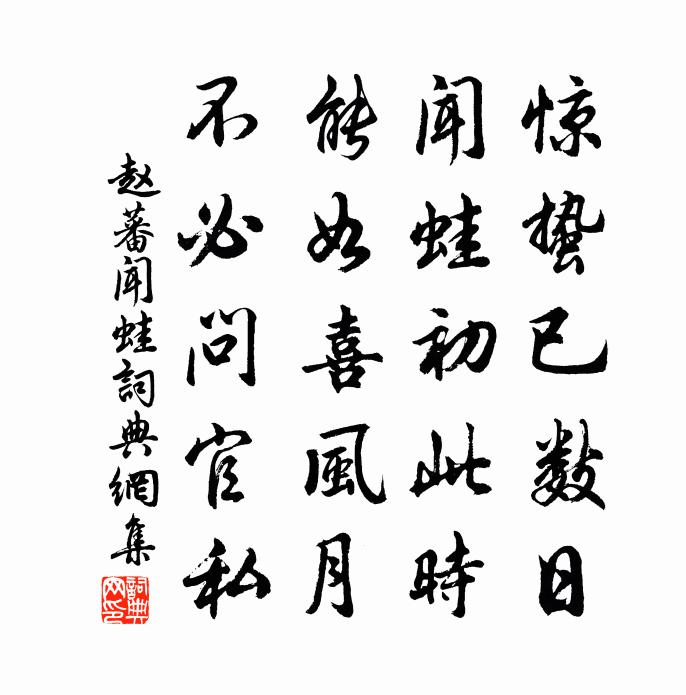 惊蛰已数日
闻蛙初此时
能如喜風月
不必问官私
赵蕃闻蛙詞典網集
詞典網印